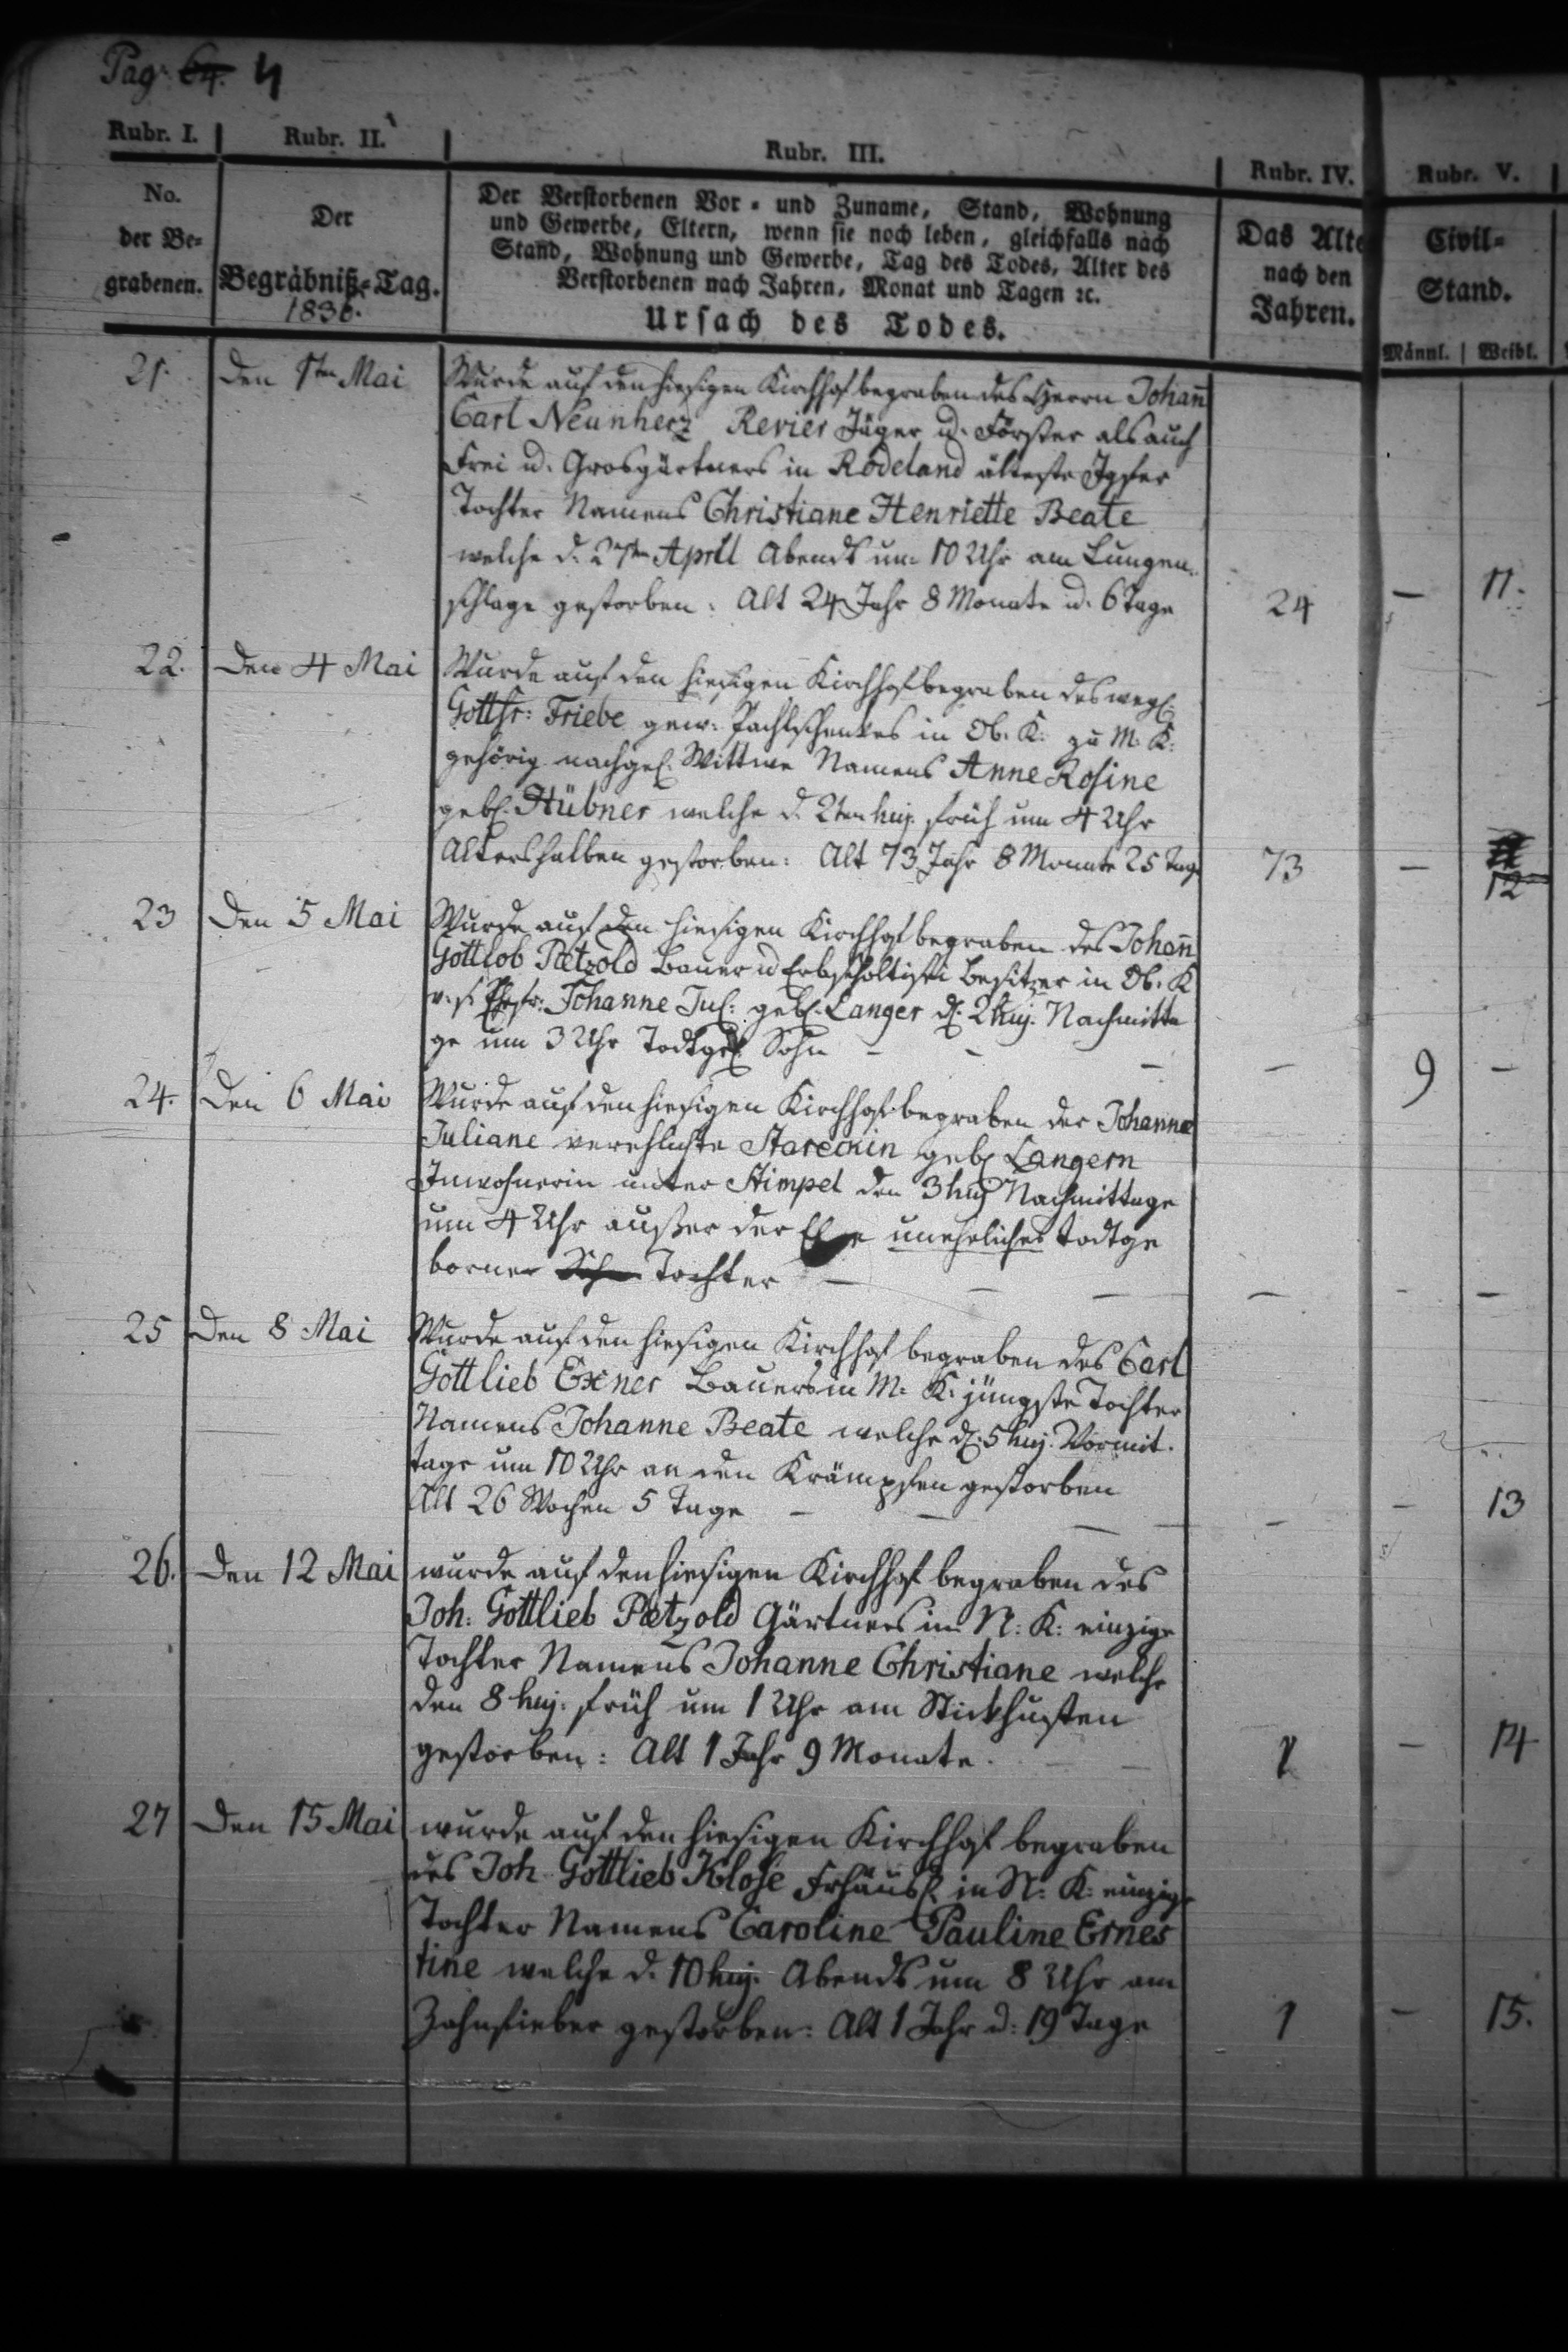 Pag. 64. 4
Rubr. I. Rubr. II. Rubr. III. Rubr. IV. Rubr. V.
No. der Be-grabenen.
Der Begräbniß-Tag.
1836.
Der Verstorbenen Vor- und Zuname, Stand, Wohnung
und Gewerbe, Eltern, wenn sie noch leben, gleichfalls nach
Stand, Wohnung und Gewerbe, Tag des Todes, Alter des
Verstorbenen nach Jahren, Monat und Tagen ꝛc.
Ursach des Todes.
Das Alte
nach den
Jahren.
Civil-
Stand.
Männl. Weibl.
21. Den 1ten Mai Wurde auf den hiesigen Kirchhof begraben des Herrn Johañ
Carl Neunherz Revier Jäger u. Förster als auch
Frei u. Grosgärtners in Rodeland älteste Jgfer
Tochter Namens Christiane Henriette Beate
welche d. 27ten April Abends um 10 Uhr am Lungen-
schlage gestorben: Alt 24 Jahr 8 Monate u. 6 Tage 24 — 11.
22. Den 4 Mai Wurde auf den hiesigen Kirchhof begraben des weyl.
Gottfr: Friebe gew. Pachtschenkes in Ob. K. zu M. K.
gehörig nachgel. Wittwe Namens Anne Rosine
geb. Hübner welche d. 2ten huj. früh um 4 Uhr
Altershalben gestorben: Alt 73 Jahr 8 Monate 25 Tag 73 — 12
23 Den 5 Mai Wurde auf den hiesigen Kirchhof begraben des Johañ
Gottlob Pætzold Bauer u Erbscholtisei Besitzer in Ob. K
v. s. Ehefr. Johanne Jul: geb. Langer d. 2 huj. Nachmitta
ge um 3 Uhr Todtgeb Sohn — — — — 9 —
24. Den 6 Mai Wurde auf den hiesigen Kirchhof begraben der Johanne
Juliane verehlichte geb Langern
Inwohnerin unter Stimpel den 3 huj Nachmittage
um 4 Uhr außer der Ehe uneheliches todtge
borner Sohn Tochter — — — — — —
25 Den 8 Mai Wurde auf den hiesigen Kirchhof begraben des Carl
Gottlieb Exner Bauers in M. K. jüngste Tochter
Namens Johanne Beate welche d. 5 huj. Vormit.
tage um 10 Uhr an den Krämpfen gestorben
Alt 26 Wochen 5 Tage — — — — — 13
26. Den 12 Mai wurde auf den hiesigen Kirchhof begraben des
Joh. Gottlieb Pætzold Gärtners in N. K: einzige
Tochter Namens Johanne Christiane welche
den 8 huj. früh um 1 Uhr am Stickhusten
gestorben: Alt 1 Jahr 9 Monate. 1 — 14
27 Den 15 Mai wurde auf den hiesigen Kirchhof begraben
des Joh Gottlieb Klose Frhäusl. in N. K. einzige
Tochter Namens Caroline Pauline Ernes
tine welche d. 10 huj. Abends um 8 Uhr am
Zahnfieber gestorben: Alt 1 Jahr u: 19 Tage 1 — 15.